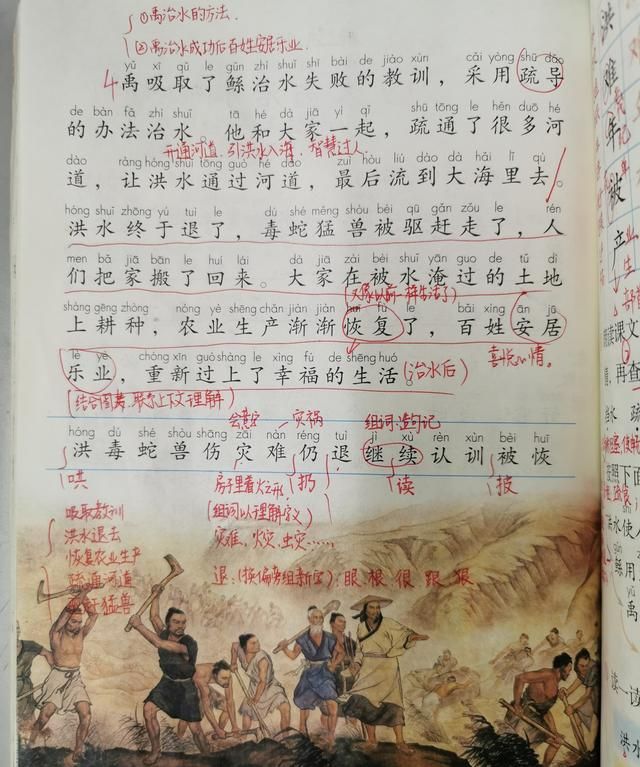 ①禹治水的方法.
②禹治水成功后百姓安居乐业.
yǔ xī qǔ le gǔn zhì shuǐ shī bài de jiào xùn cǎi yòng shū dǎo
4 禹吸取了鲧治水失败的教训，采用疏导
de bàn fǎ zhì shuǐ tā hé dà jiā yì qǐ shū tōng le hěn duō hé
的办法治水。他和大家一起，疏通了很多河
开通河道,引洪水入海,智慧过人.
dào ràng hóng shuǐ tōng guò hé dào zuì hòu liú dào dà hǎi lǐ qù
道，让洪水通过河道，最后流到大海里去。
hóng shuǐ zhōng yú tuì le dú shé měng shòu bèi qū gǎn zǒu le rén
洪水终于退了，毒蛇猛兽被驱赶走了，人
men bǎ jiā bān le huí lái dà jiā zài bèi shuǐ yān guo de tǔ dì
们把家搬了回来。大家在被水淹过的土地
(又像以前一样生活了)
shàng gēng zhòng nóng yè shēng chǎn jiàn jiàn huī fù le bǎi xìng ān jū
上耕种，农业生产渐渐恢复了，百姓安居
喜悦心情。
lè yè chóng xīn guò shàng le xìng fú de shēng huó
乐业，重新过上了幸福的生活(治水后)
(结合图画,联系上下文理解)
会意字 灾祸 组词,造句记
hóng dú shé shòu shāng zāi nàn réng tuì jì xù rèn xùn bèi huī
洪毒蛇兽伤灾难仍退继续认训被恢
哄 房子里着火之形 扔 读 披
(组词以理解字义)
灾难、火灾、虫灾……
吸取教训
洪水退去
恢复农业生产
疏通河道
猛兽
退:(换偏旁组新字):眼 根 很 跟 狠
洪
难
年
被
产
读课文
再查
按照下面
洪水使人
鲧用
yǔ
禹
读一读
洪水